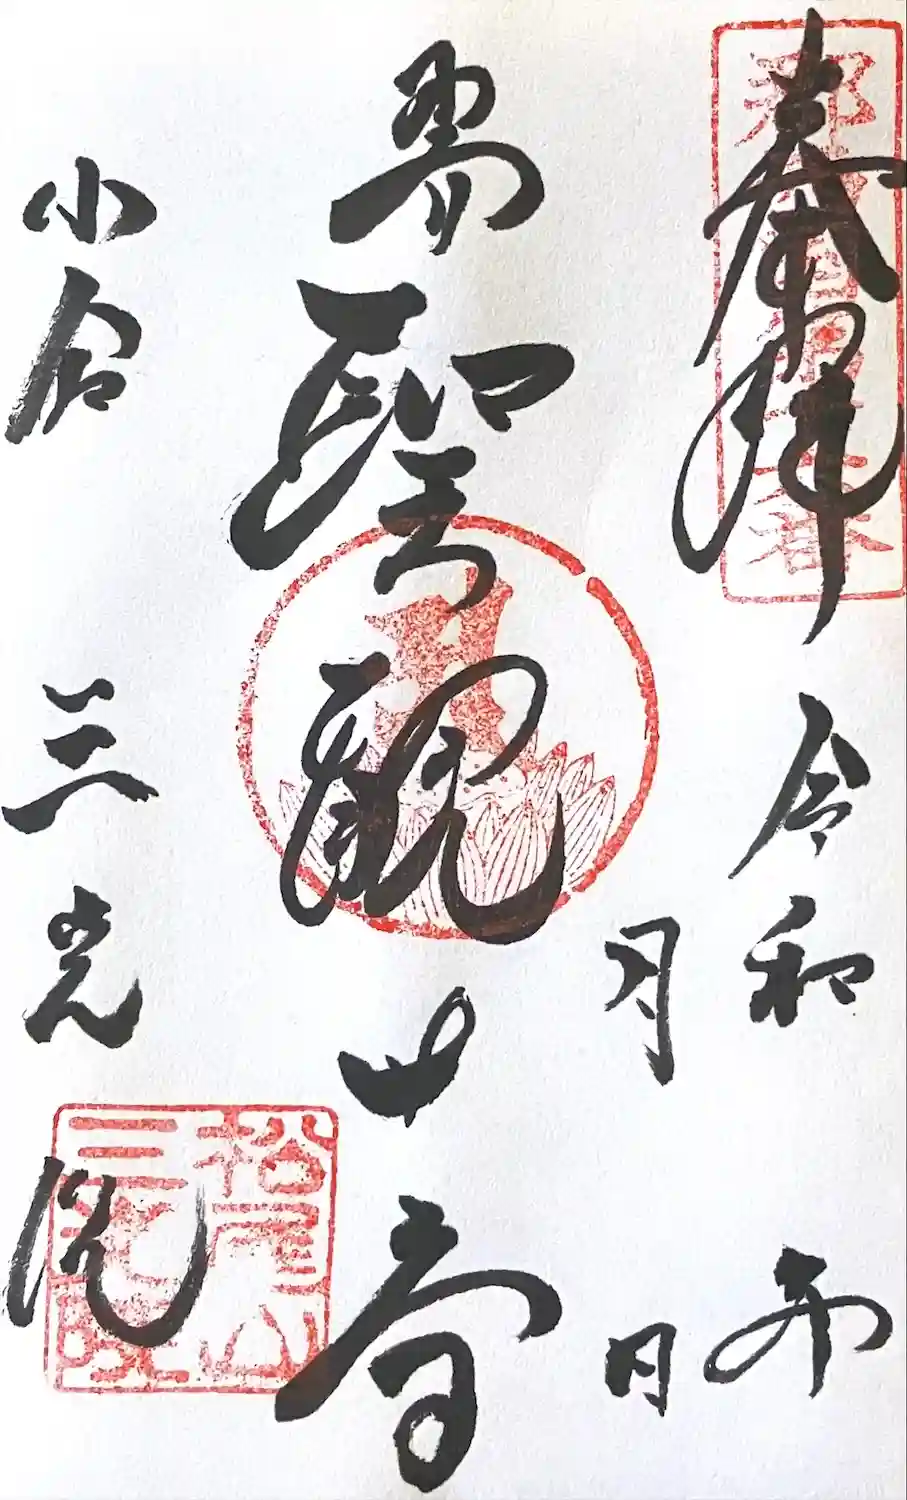 奉拝 令和 年
月 日
聖観世音
小倉 三光院
松尾山
三光院